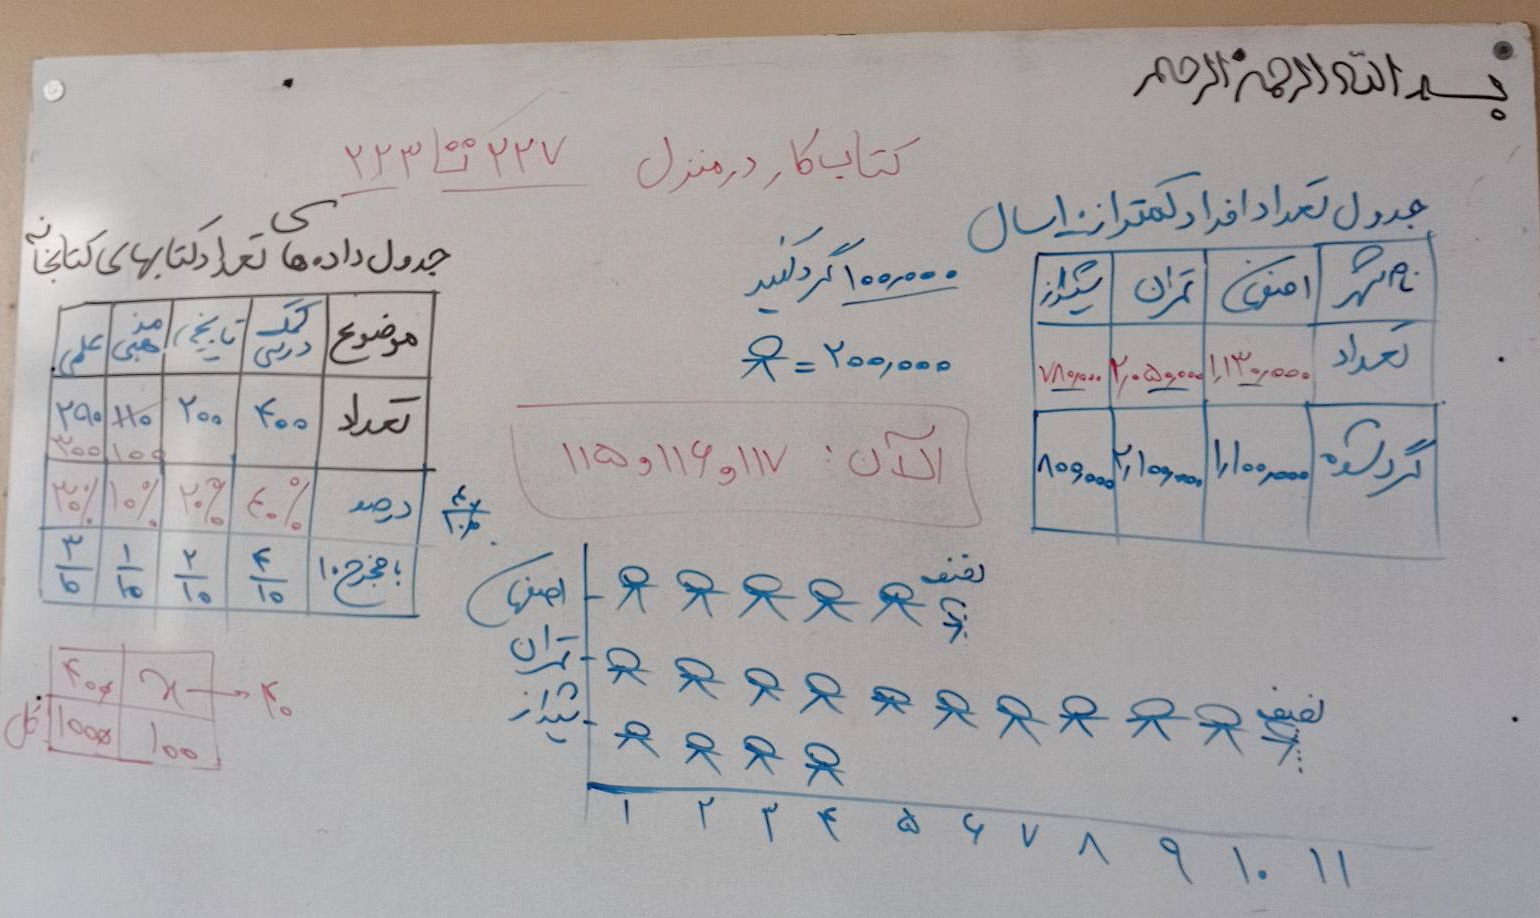 بسم الله الرحمن الرحیم
کتاب کار در منزل ۲۲۷ تا ۲۲۳
جدول تعداد افراد کمتر از ۱۰ سال
نام شهر اصفهان تهران شیراز
تعداد ۱,۱۳۰,۰۰۰ ۲,۰۵۰,۰۰۰ ۷۸۰,۰۰۰
گرد شده ۱,۱۰۰,۰۰۰ ۲,۱۰۰,۰۰۰ ۸۰۰,۰۰۰
۱۰۰,۰۰۰ گرد کنید
= ۲۰۰,۰۰۰
الآن: ۱۱۷ و ۱۱۶ و ۱۱۵
جدول داده های تعداد کتابهای کتابخانه
موضوع کمک درسی تاریخی مذهبی علمی
تعداد ۴۰۰ ۲۰۰ ۱۱۰ ۲۹۰
۱۰۰ ۳۰۰
درصد ۴۰% ۲۰% ۱۰% ۳۰%
با مخرج ۱۰ ۴/۱۰ ۲/۱۰ ۱/۱۰ ۳/۱۰
۴۰۰ x → ۴۰
کل ۱۰۰۰ ۱۰۰
اصفهان نصف
تهران نصف
شیراز
۱ ۲ ۳ ۴ ۵ ۶ ۷ ۸ ۹ ۱۰ ۱۱